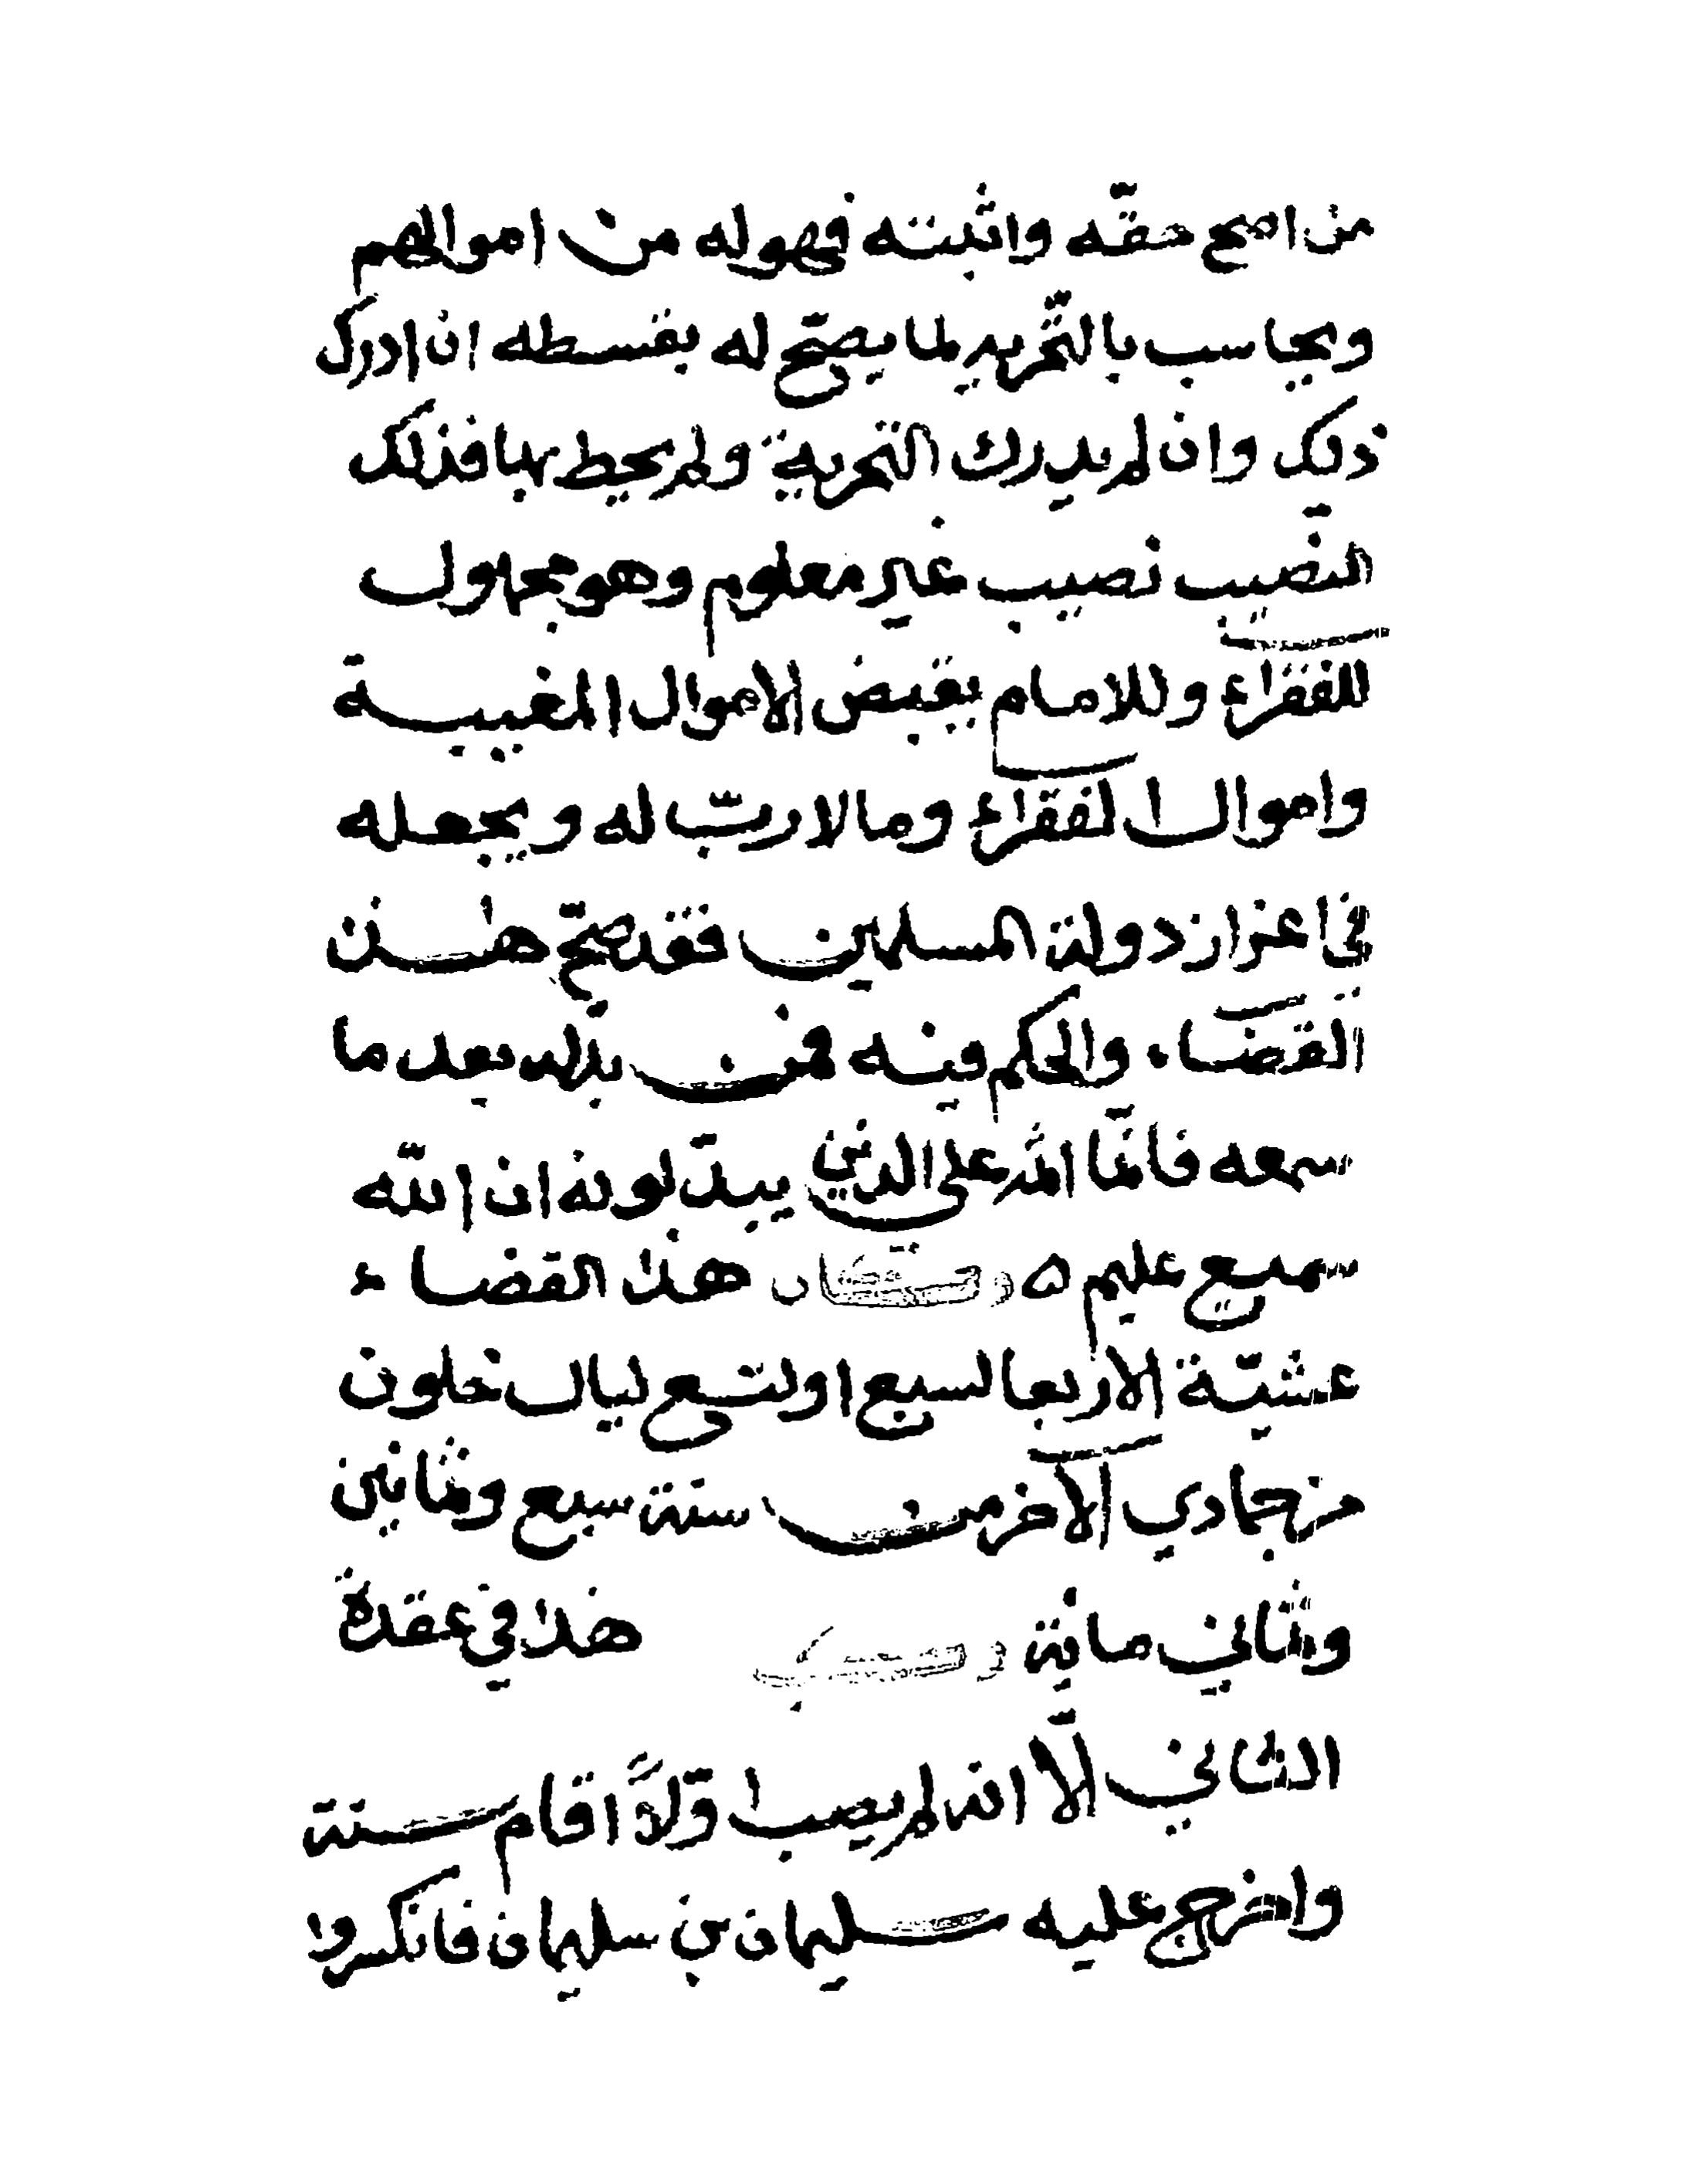 من اصح حقّه واثبته فهو له من اموالهم
ويحاسب بالتّحريه لما يصحّ له بقسطه ان ادرك
ذلك وان لم يدرك التحرية ولم يحط بها فذلك
النصّيب نصيب غير معلوم وهو مجهول
للفقراء وللامام يقبض الاموال المغيبة
واموال الفقراء وما لا ربّ له ويجعله
في اعزاز دولة المسلمين فقد صحّ هذا
القضاء والحكم فيه فمن بدّله بعد ما
سمعه فانّما اثمه على الذين يبدّلونه ان اللّه
سميع عليم ه وكان هذا القضاء
عشيّة الاربعا لسبع او لتسع ليال خلون
من جمادي الآخر من سنة سبع وثمانين
وثماني مائة وكتب هذا في عقدة
الثاني الّا انه لم يصب اوّلاً اقام سنة
واخرج عليه سليمان بن سليمان فانكروا